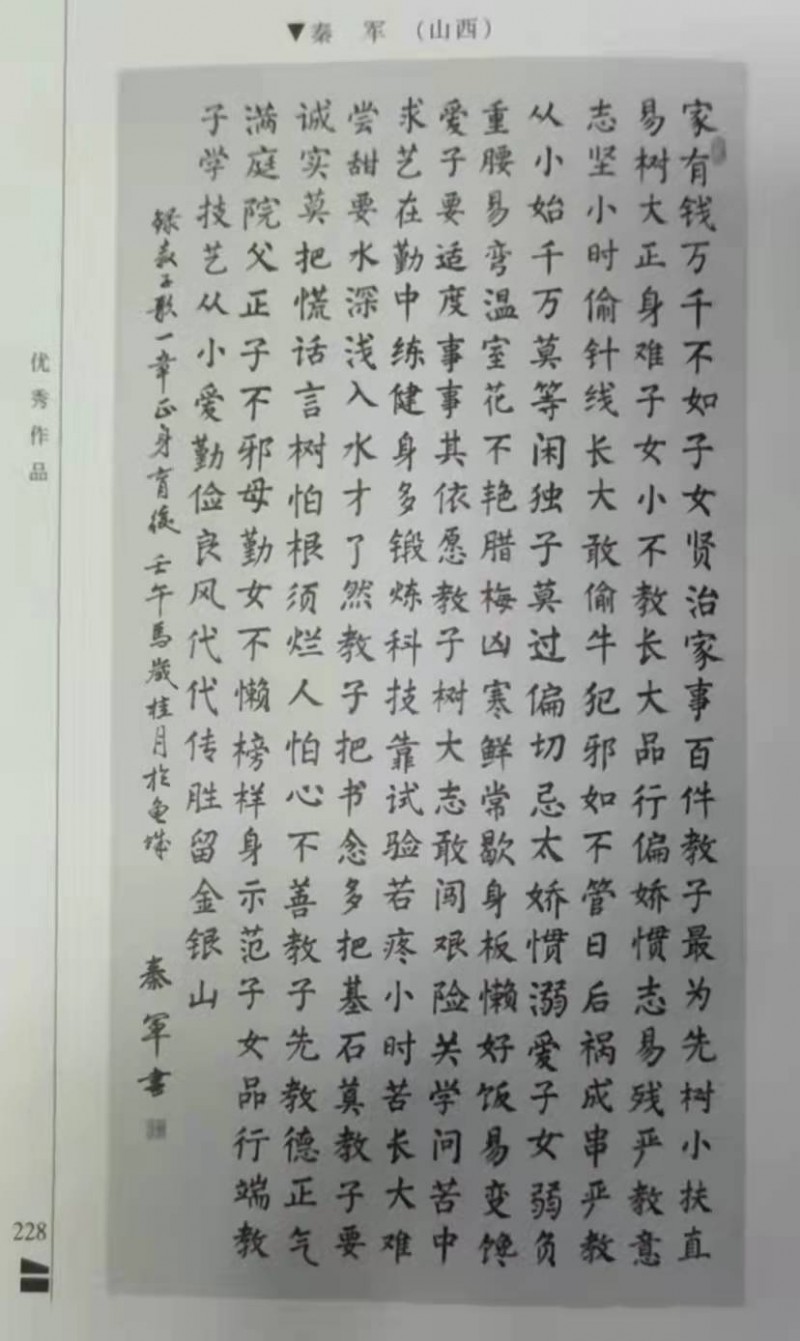 ▼秦 军 (山西)
家有钱万千不如子女贤治家事百件教子最为先树小扶直
易树大正身难子女小不教长大品行偏娇惯志易残严教意
志坚小时偷针线长大敢偷牛犯邪如不管日后祸成串严教
从小始千万莫等闲独子莫过偏切忌太娇惯溺爱子女弱负
重腰易弯温室花不艳腊梅凶寒鲜常歇身板懒好饭易变馋
爱子要适度事事其依愿教子树大志敢闯艰险关学问苦中
求艺在勤中练健身多锻炼科技靠试验若疼小时苦长大难
尝甜要水深浅入水才了然教子把书念多把基石莫教子要
诚实莫把慌话言树怕根须烂人怕心不善教子先教德正气
满庭院父正子不邪母勤女不懒榜样身示范子女品行端教
子学技艺从小爱勤俭良风代代传胜留金银山
録教子歌一章正身育後 壬午馬歲桂月於龟城
秦军書
优秀作品
228